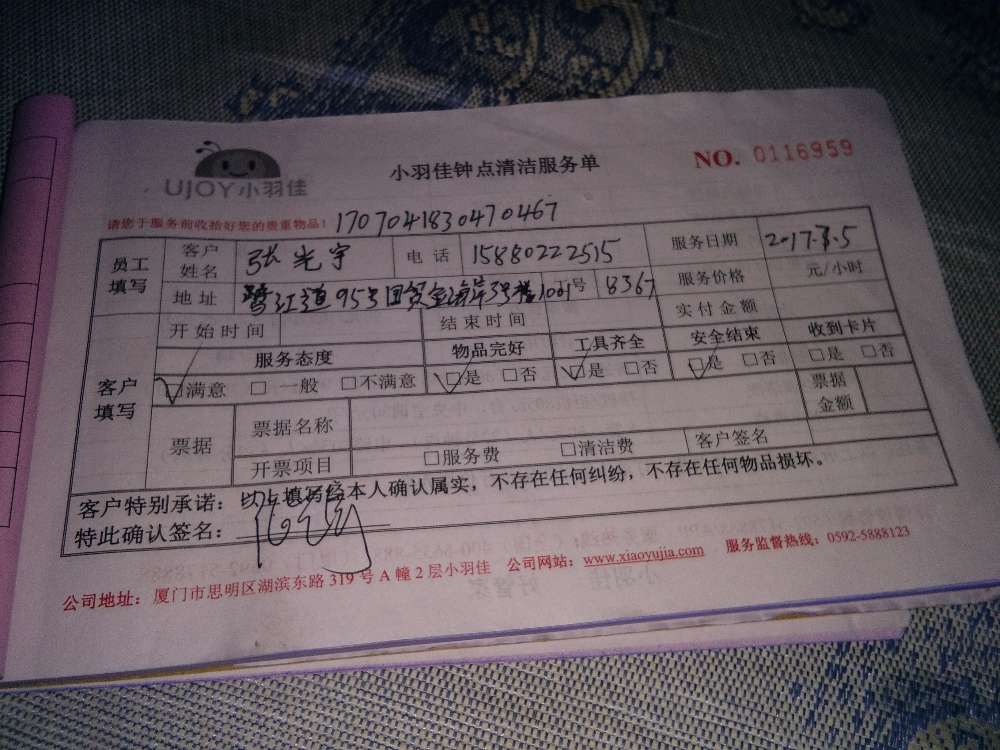 UJOY小羽佳
小羽佳钟点清洁服务单
NO. 0116959
请您于服务前收拾好您的贵重物品! 1707041830470467
员工填写 客户姓名 张光宇 电话 15880222515 服务日期 2017.7.5
地址 鹭江道95号国贸金海岸3号楼1001号 8367 服务价格 元/小时
客户填写 开始时间 结束时间 实付金额
服务态度 物品完好 工具齐全 安全结束 收到卡片
☑满意 □ 一般 □不满意 ☑是 □否 ☑是 □否 ☑是 □否 □是 □否
票据 票据名称 票据金额
开票项目 □服务费 □清洁费 客户签名
客户特别承诺: 以上填写经本人确认属实,不存在任何纠纷,不存在任何物品损坏。
特此确认签名:
公司地址: 厦门市思明区湖滨东路 319 号 A 幢 2 层小羽佳 公司网站: www.xiaoyujia.com 服务监督热线: 0592-5888123